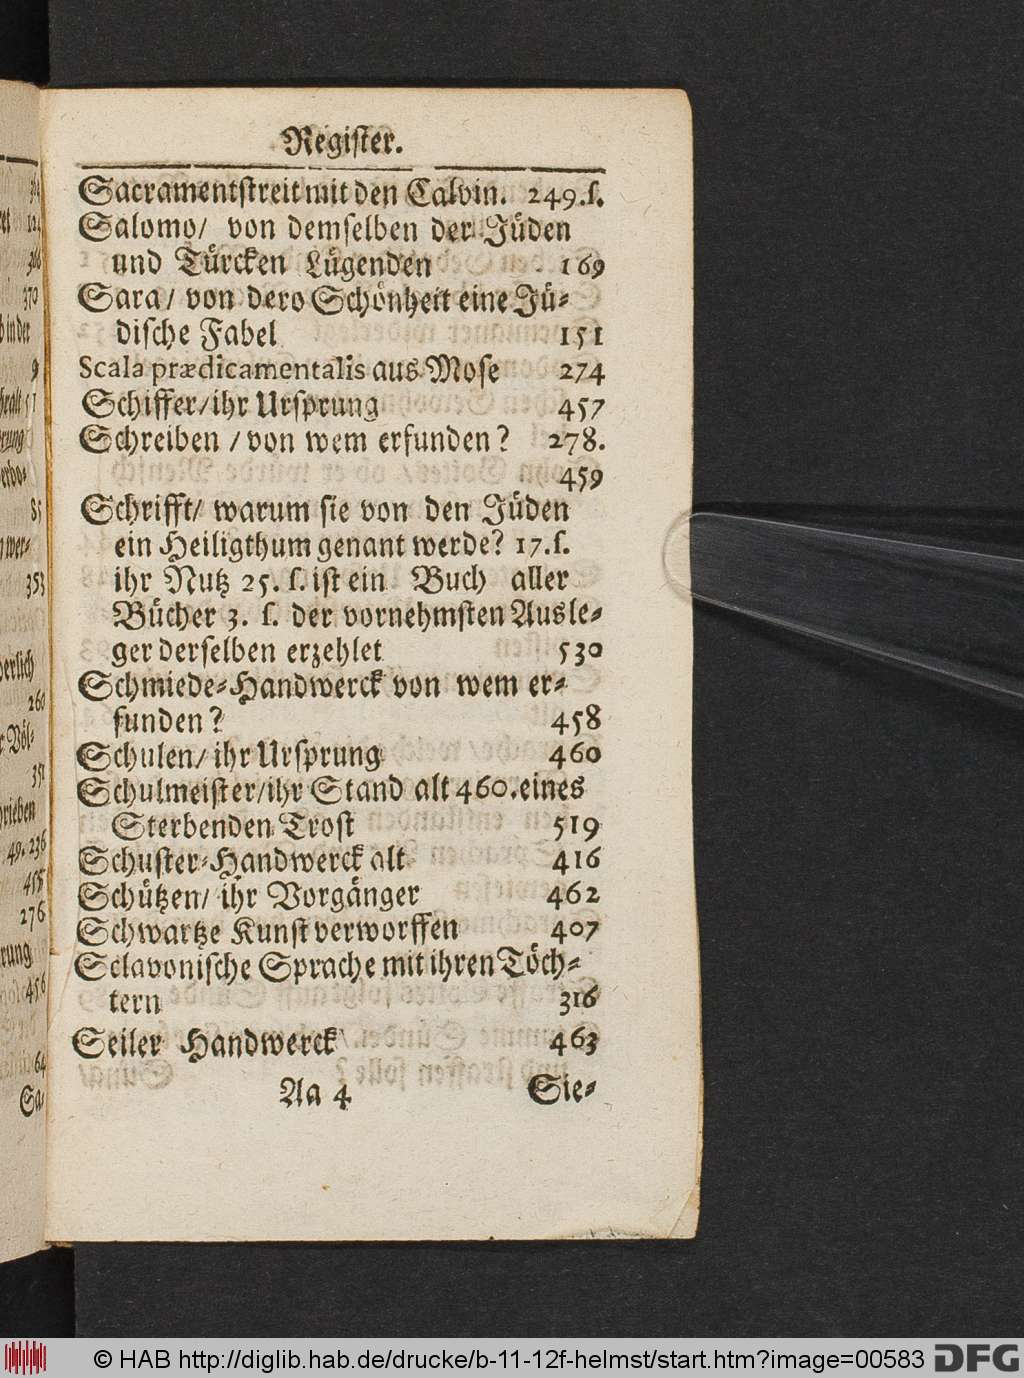 Register.
Sacramentstreit mit den Calvin. 249.s.
Salomo/ von demselben der Jüden
und Türcken Lügenden 169
Sara/ von dero Schönheit eine Jü-
dische Fabel 151
Scala prædicamentalis aus Mose 274
Schiffer/ihr Ursprung 457
Schreiben / von wem erfunden? 278.
459
Schrifft/ warum sie von den Jüden
ein Heiligthum genant werde? 17.s.
ihr Nutz 25. s. ist ein Buch aller
Bücher 3. s. der vornehmsten Ausle-
ger derselben erzehlet 530
Schmiede-Handwerck von wem er-
funden? 458
Schulen/ ihr Ursprung 460
Schulmeister/ihr Stand alt 460.eines
Sterbenden Trost 519
Schuster-Handwerck alt 416
Schützen/ ihr Vorgänger 462
Schwartze Kunst verworffen 407
Sclavonische Sprache mit ihren Töch-
tern 316
Seiler Handwerck 463
Aa 4 Sie-
© HAB http://diglib.hab.de/drucke/b-11-12f-helmst/start.htm?image=00583 DFG